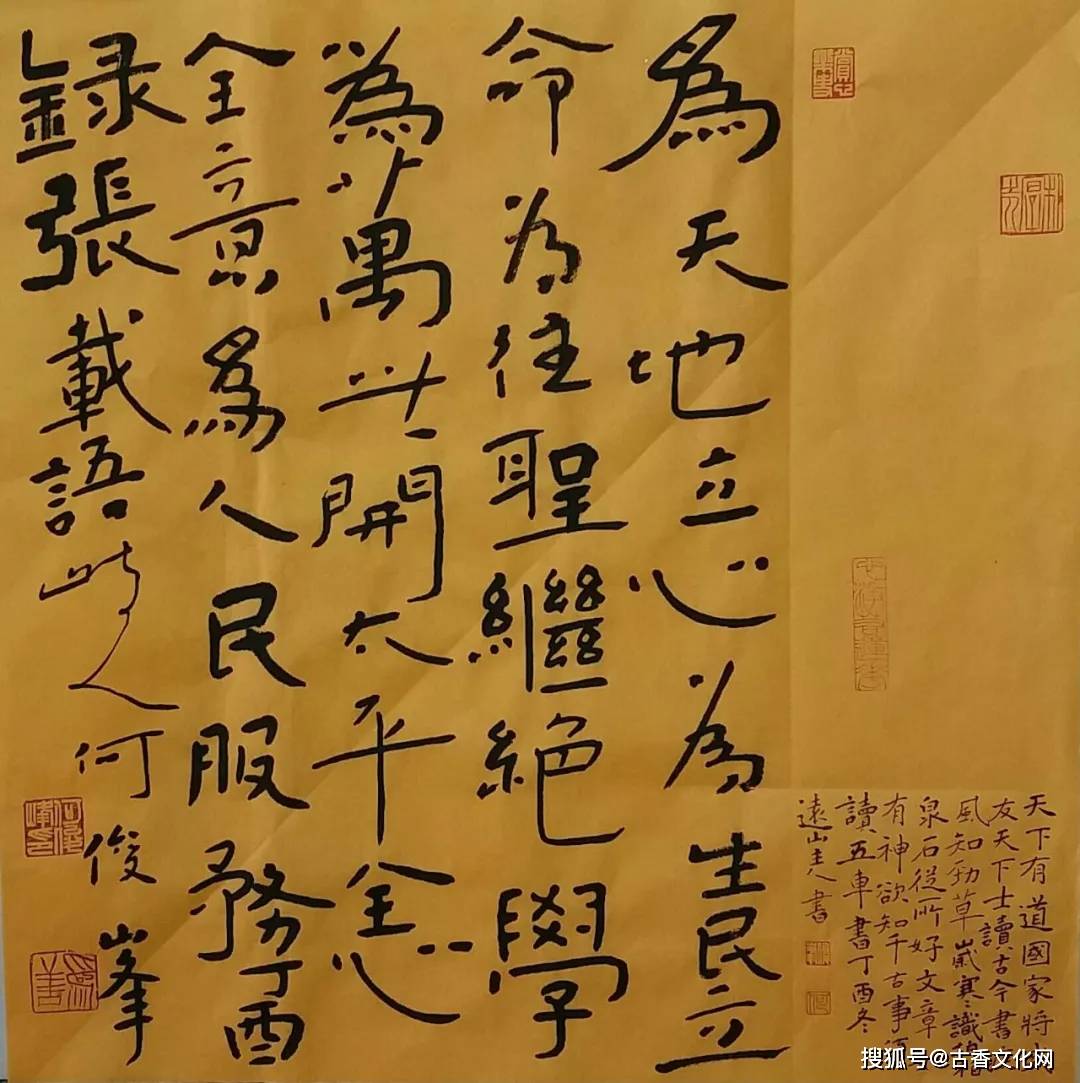 為天地立心為生民立
命為往聖繼絕學
為萬世開太平全心
全意為人民服務丁酉
錄張載語岐人何俊峯
天下有道國家將
友天下士讀古今書
風知勁草歲寒識
泉石從所好文章
有神欲知千古事須
讀五車書丁酉冬
遠山主人書
搜狐号@古香文化网